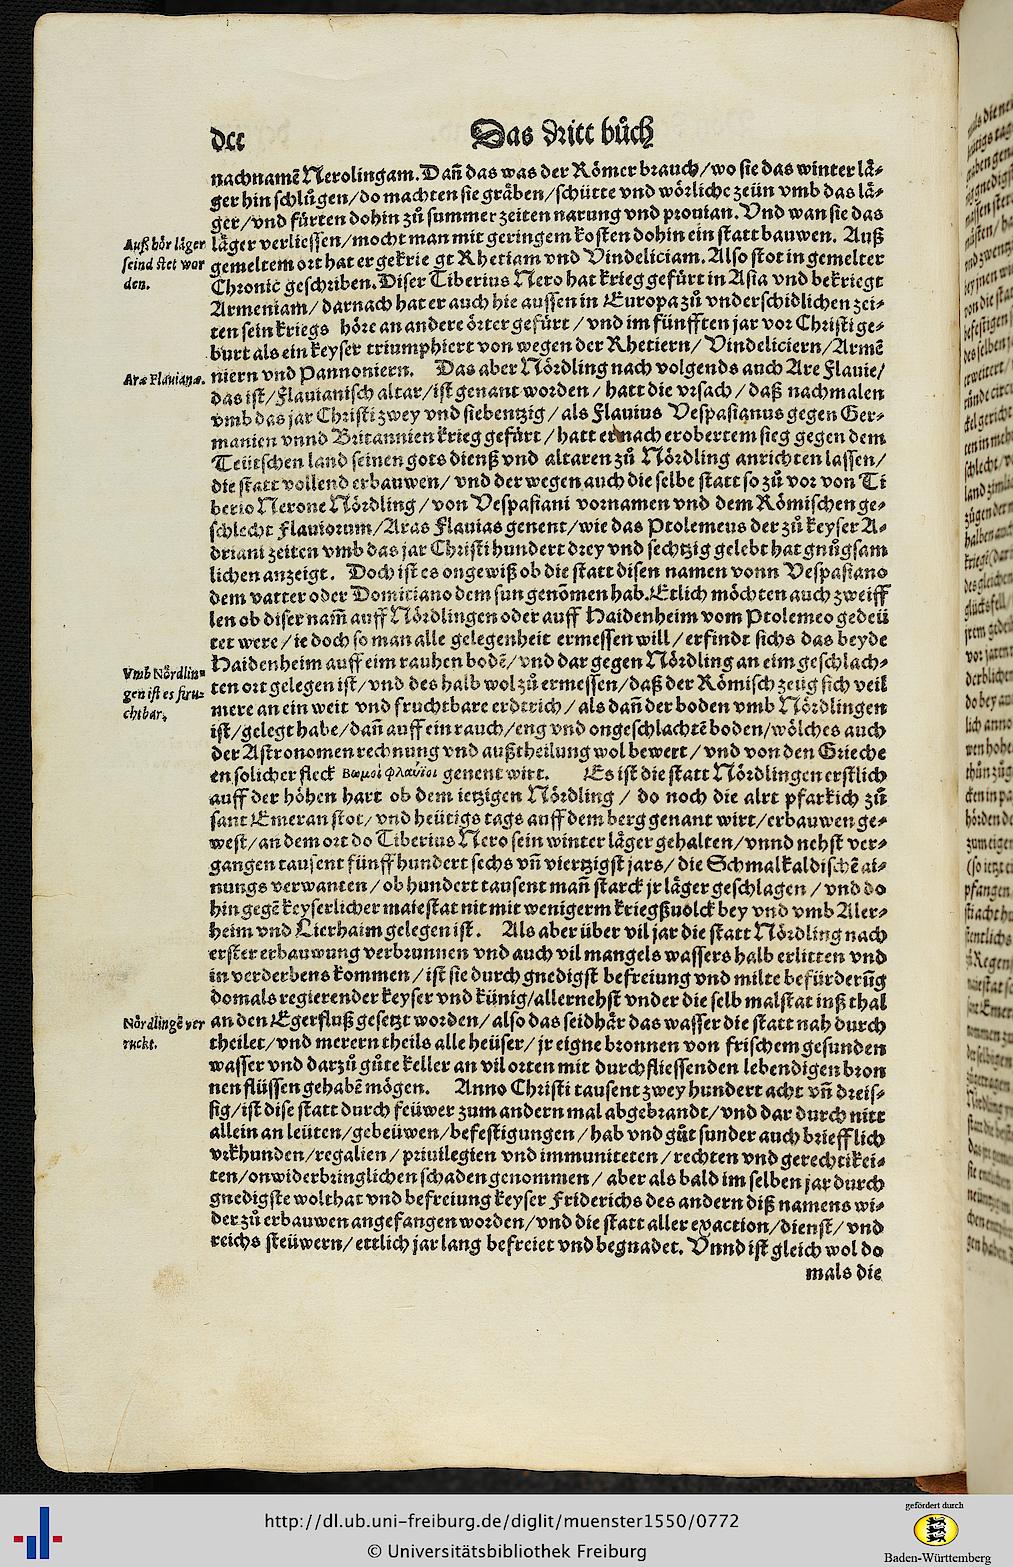 dcc
Das dritt bůch
nachnamẽ Nerolingam. Dañ das was der Rômer brauch/ wo sie das winter lå-
ger hin schlůgen/ do machten sie gråben/ schütte vnd wôrliche zeün vmb das lå-
ger/ vnd fürten dohin zů summer zeiten narung vnd prouian. Vnd wan sie das
låger verliessen/ mocht man mit geringem kosten dohin ein statt bauwen. Auß
gemeltem ort hat er gekrie gt Rhetiam vnd Vindeliciam. Also stot in gemelter
Chronic geschriben. Diser Tiberius Nero hat krieg gefürt in Asia vnd bekriegt
Armeniam/ darnach hat er auch hie aussen in Europa zů vnderschidlichen zei-
ten sein kriegs hôre an andere ôrter gefürt / vnd im fünfften jar vor Christi ge-
burt als ein keyser triumphiert von wegen der Rhetiern/ Vindeliciern/ Armẽ
niern vnd Pannoniern. Das aber Nôrdling nach volgends auch Are Flauie/
das ist/ Flauianisch altar/ ist genant worden / hatt die vrsach/ daß nachmalen
vmb das jar Christi zwey vnd siebentzig / als Flauius Vespasianus gegen Ger-
manien vnnd Britannien krieg gefürt / hatt er nach erobertem sieg gegen dem
Teütschen land seinen gots dienß vnd altaren zů Nôrdling anrichten lassen/
die statt vollend erbauwen/ vnd der wegen auch die selbe statt so zů vor von Ti
berio Nerone Nôrdling / von Vespasiani vornamen vnd dem Rômischen ge-
schlecht Flauiorum/ Aras Flauias genent/ wie das Ptolemeus der zů keyser A-
driani zeiten vmb das jar Christi hundert drey vnd sechtzig gelebt hat gnůgsam
lichen anzeigt. Doch ist es ongewiß ob die statt disen namen vonn Vespasiano
dem vatter oder Domitiano dem sun genõmen hab. Etlich môchten auch zweiff
len ob diser nam̃ auff Nôrdlingen oder auff Haidenheim vom Ptolemeo gedeü
tet were/ ie doch so man alle gelegenheit ermessen will/ erfindt sichs das beyde
Haidenheim auff eim rauhen bodẽ/ vnd dar gegen Nôrdling an eim geschlach-
ten ort gelegen ist/ vnd des halb wol zů ermessen/ daß der Rômisch zeüg sich veil
mere an ein weit vnd fruchtbare erdtrich/ als dañ der boden vmb Nôrdlingen
ist/ gelegt habe/ dañ auff ein rauch/ eng vnd ongeschlachtẽ boden/ wôlches auch
der Astronomen rechnung vnd außtheilung wol bewert/ vnd von den Grieche
en solicher fleck Βωμοὶ φλαύιοι genent wirt. Es ist die statt Nôrdlingen erstlich
auff der hôhen hart ob dem ietzigen Nôrdling / do noch die alt pfarkich zů
sant Emeran stot/ vnd heütigs tags auff dem berg genant wirt/ erbauwen ge-
west/ an dem ort do Tiberius Nero sein winter låger gehalten/ vnnd nehst ver-
gangen tausent fünff hundert sechs vñ viertzigst jars/ die Schmalkaldischẽ ai-
nungs verwanten / ob hundert tausent mañ starck jr låger geschlagen / vnd do
hin gegẽ keyserlicher maiestat nit mit wenigerm kriegßuolck bey vnd vmb Aler-
heim vnd Lierhaim gelegen ist. Als aber über vil jar die statt Nôrdling nach
erster erbauwung verbrunnen vnd auch vil mangels wassers halb erlitten vnd
in verderbens kommen / ist sie durch gnedigst befreiung vnd milte befürderũg
domals regierender keyser vnd künig/ allernehst vnder die selb malstat inß thal
an den Egerfluß gesetzt worden/ also das seidhår das wasser die statt nah durch
theilet/ vnd merern theils alle heüser/ jr eigne bronnen von frischem gesunden
wasser vnd darzů gůte keller an vil orten mit durchfliessenden lebendigen bron
nen flüssen gehabẽ môgen. Anno Christi tausent zwey hundert acht vñ dreis-
sig/ ist dise statt durch feüwer zum andern mal abgebrandt/ vnd dar durch nitt
allein an leüten/ gebeüwen/ befestigungen / hab vnd gůt sunder auch briefflich
vrkhunden/ regalien / priuilegien vnd immuniteten / rechten vnd gerechtikei-
ten/ onwiderbringlichen schaden genommen / aber als bald im selben jar durch
gnedigste wolthat vnd befreiung keyser Friderichs des andern diß namens wi-
der zů erbauwen angefangen worden/ vnd die statt aller exaction/ dienst/ vnd
reichs steüwern/ ettlich jar lang befreiet vnd begnadet. Vnnd ist gleich wol do
mals die
Auß hôr låger
seind stet wor
den.
Aræ Flauianæ.
Vmb Nôrdlin-
gen ist es fru-
chtbar.
Nôrdlingẽ ver
ruckt.
http://dl.ub.uni-freiburg.de/diglit/muenster1550/0772
© Universitätsbibliothek Freiburg
gefördert durch
Baden-Württemberg